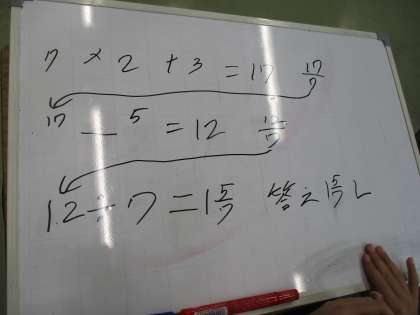 7 × 2 + 3 = 17 17/7
17 − 5 = 12 12/7
12 ÷ 7 = 1 5/7 答え 1 5/7 L